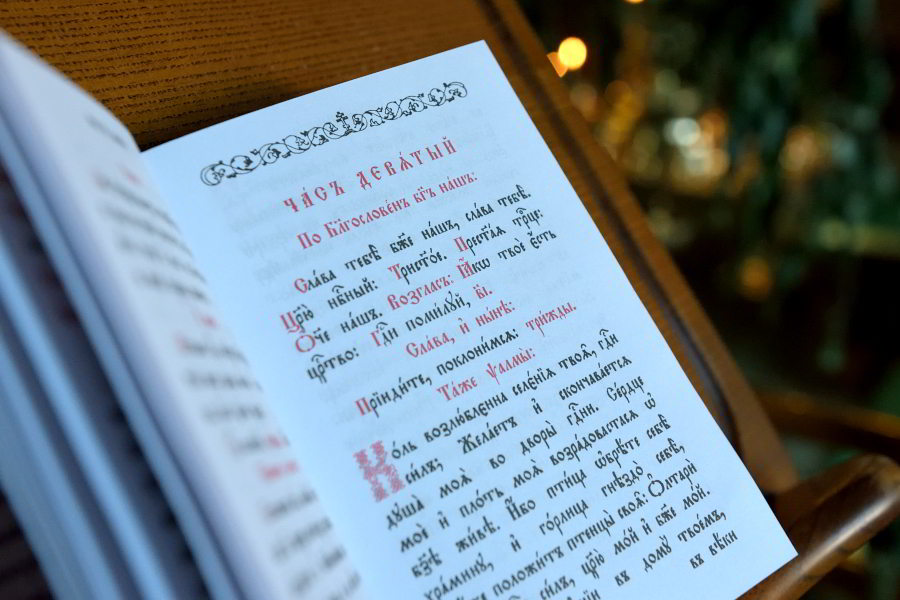 ЧА́СЪ ДЕВѦ́ТЫЙ
По Бл҃гослове́нъ бг҃ъ на́шъ:
Сла́ва тебѣ̀ бж҃е на́шъ, сла́ва тебѣ̀.
Цр҃ю̀ нб҃ный: Трист҃о́е. Прест҃а́ѧ трⷪ҇це:
Ѻ҆́ч҃е на́шъ. Возгла́съ: Ꙗ҆́кѡ твоѐ є҆́сть
црⷭ҇тво: Гдⷭ҇и поми́лꙋй, в҃і.
Сла́ва, и҆ ны́нѣ:
Прїиди́те, поклони́мсѧ: три́жды.
Та́же ѱалмы̀:
Ко́ль возлю́бленна селє́нїѧ твоѧ̑, гдⷭ҇и
си́лъ; Жела́етъ и҆ скончава́етсѧ
дꙋша̀ моѧ̀ во дворы̀ гдⷭ҇ни. Се́рдце
моѐ и҆ пло́ть моѧ̀ возра́довастасѧ ѡ҆
бз҃ѣ жи́вѣ. И҆́бо пти́ца ѡ҆брѣ́те себѣ̀
хра́минꙋ, и҆ го́рлица гнѣздо̀ себѣ̀,
положи́тъ птенцы̀ своѧ̑: Ѻ҆лтари̑
си́лъ, цр҃ю̀ мо́й и҆ бж҃е мо́й.
въ домꙋ̀ твое́мъ,
въ вѣ́ки